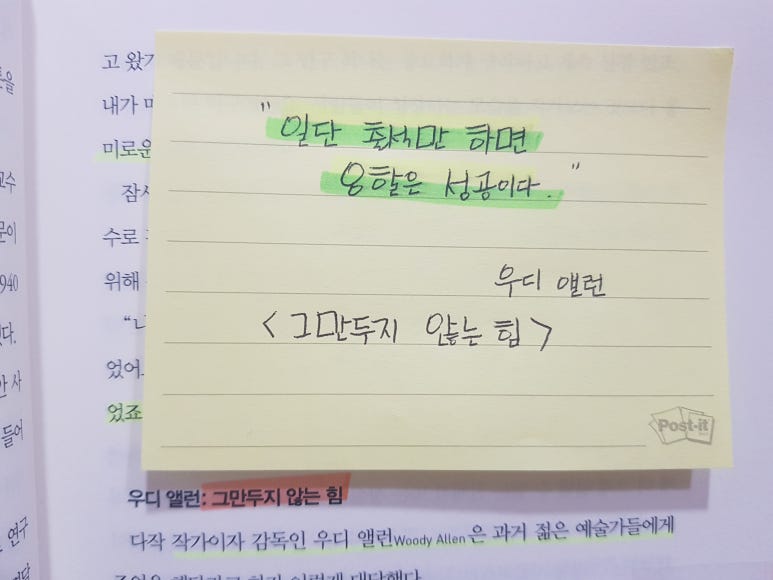 고 왔
내가
미로운
수로
위해
었어
었죠
" 일단 출석만 하면
8할은 성공이다. "
우디 앨런
< 그만두지 않는 힘 >
Post-it
우디 앨런: 그만두지 않는 힘
다작 작가이자 감독인 우디 앨런Woody Allen은 과거 젊은 예술가들에게
교수
문이
940
다.
사
들어
연구